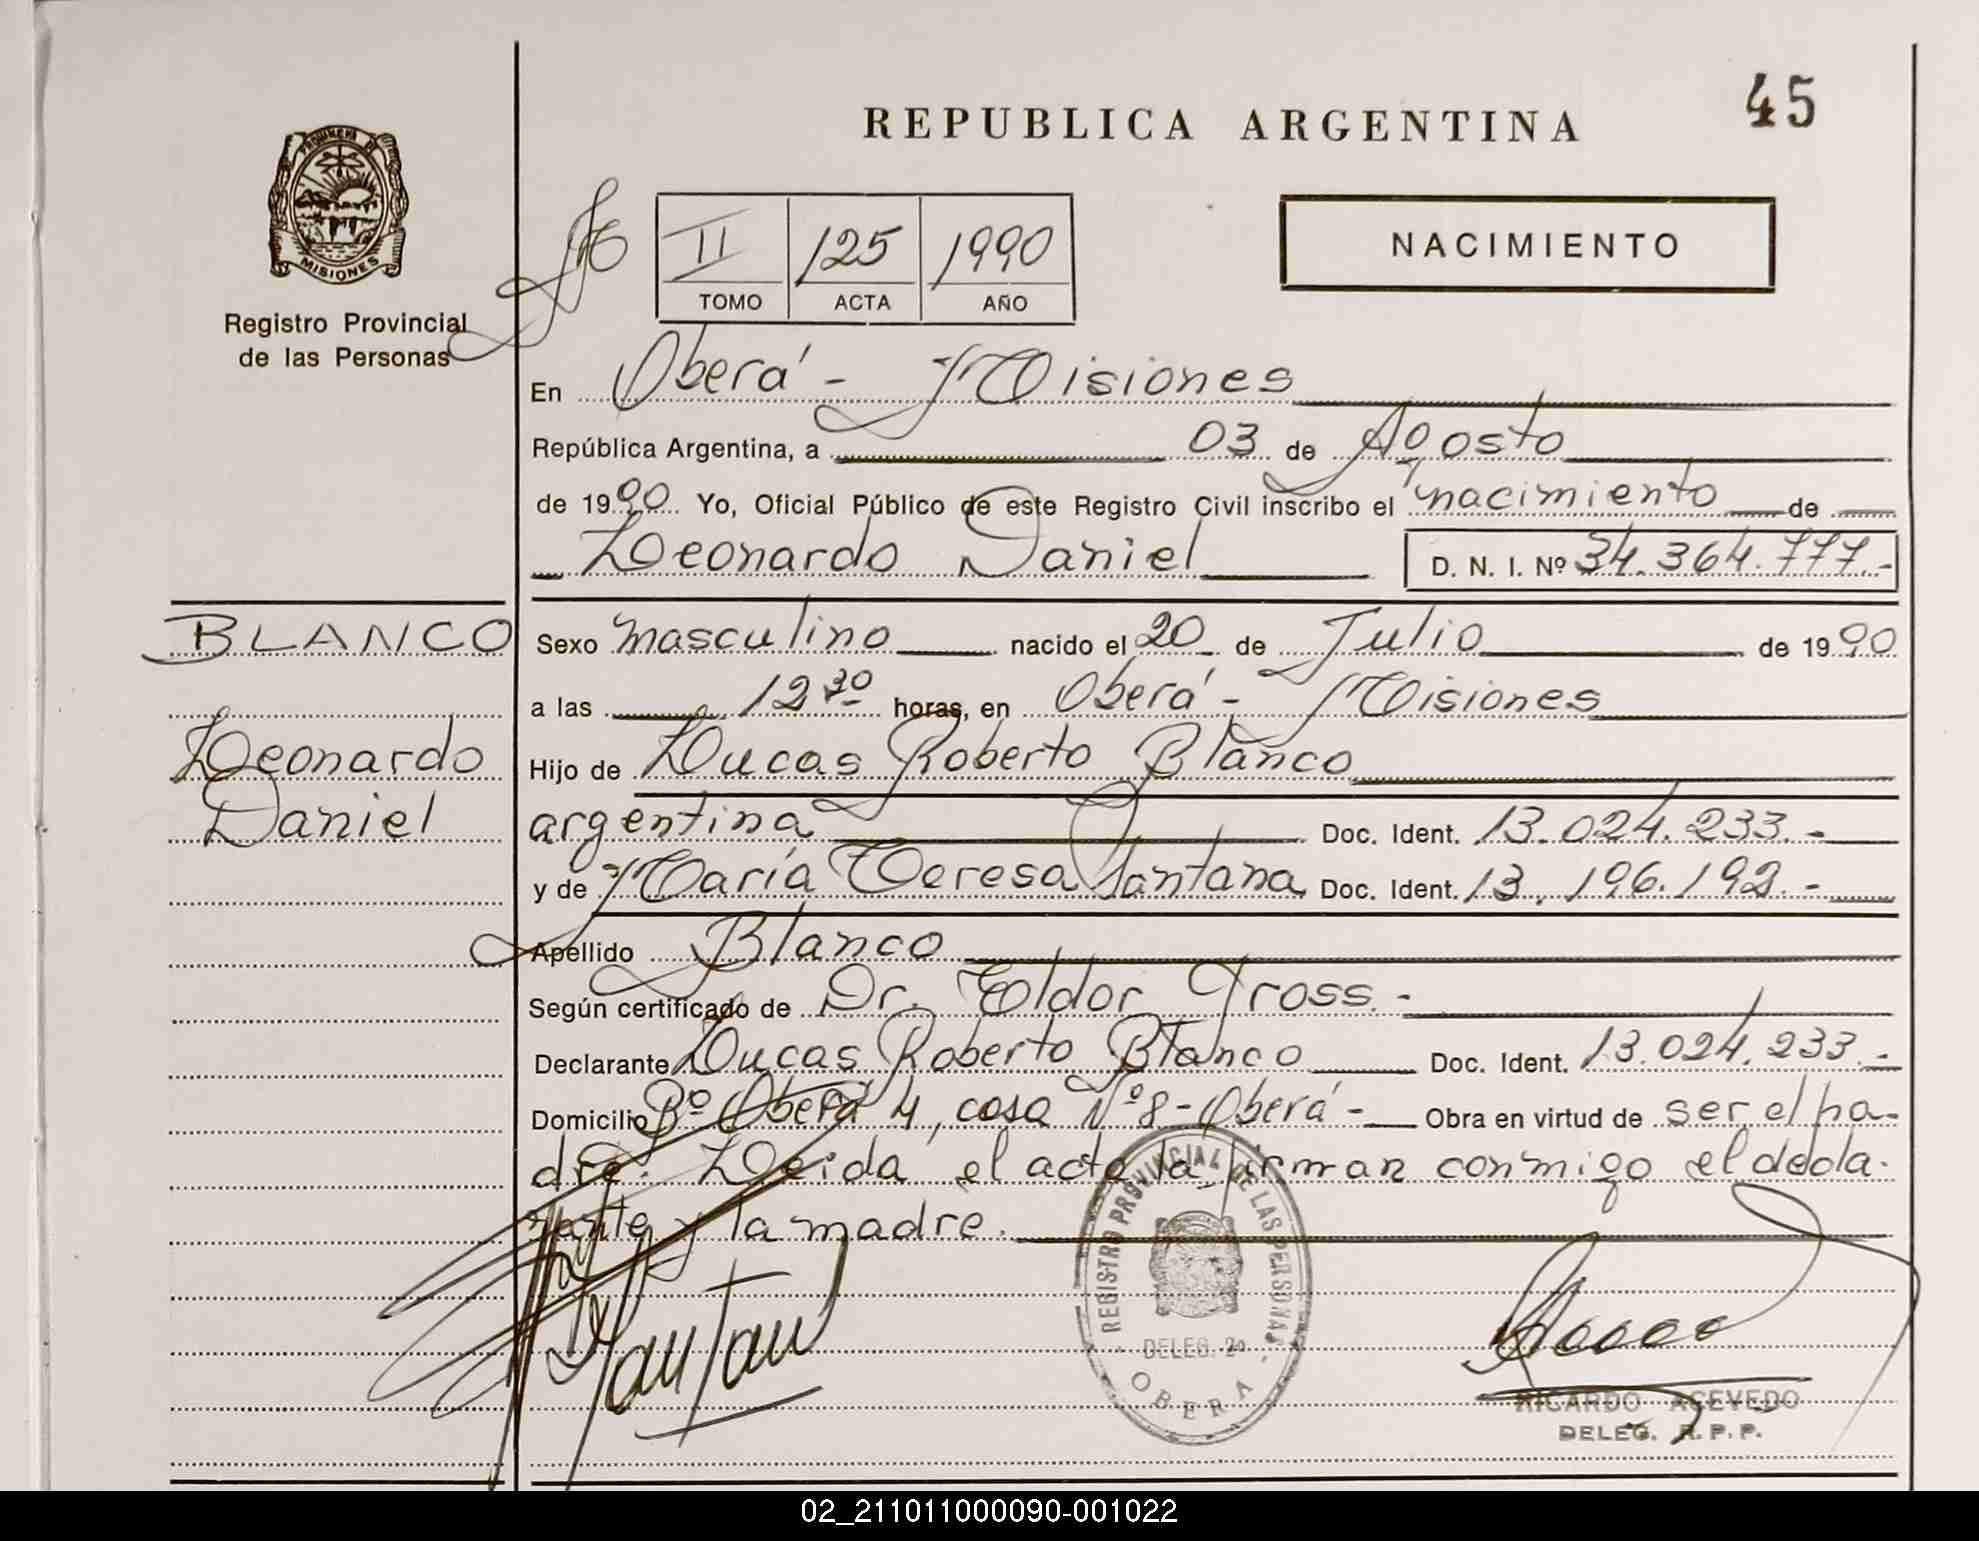 45
REPUBLICA ARGENTINA
PROVINCIA DE
MISIONES
Registro Provincial
de las Personas
II 125 1990
TOMO ACTA AÑO
NACIMIENTO
En Oberá - Misiones
República Argentina, a 03 de Agosto
de 1990 Yo, Oficial Público de este Registro Civil inscribo el nacimiento de
Leonardo Daniel D. N. I. Nº 34.364.777.-
BLANCO
Leonardo
Daniel
Sexo masculino nacido el 20 de Julio de 1990
a las 12 30 horas, en Oberá - Misiones
Hijo de Lucas Roberto Blanco
argentina Doc. Ident. 13.024.233.-
y de María Teresa Santana Doc. Ident. 13.196.192.-
Apellido Blanco
Según certificado de Dr. Eldor Gross.-
Declarante Lucas Roberto Blanco Doc. Ident. 13.024.233.-
Domicilio Bº Oberá 4, casa Nº 8 - Oberá - Obra en virtud de ser el pa-
dre. Leída el acta la firman conmigo el decla-
rante y la madre.
REGISTRO PROVINCIAL DE LAS PERSONAS
DELEG. 2ª
OBERA
RICARDO ACEVEDO
DELEG. R.P.P.
02_211011000090-001022